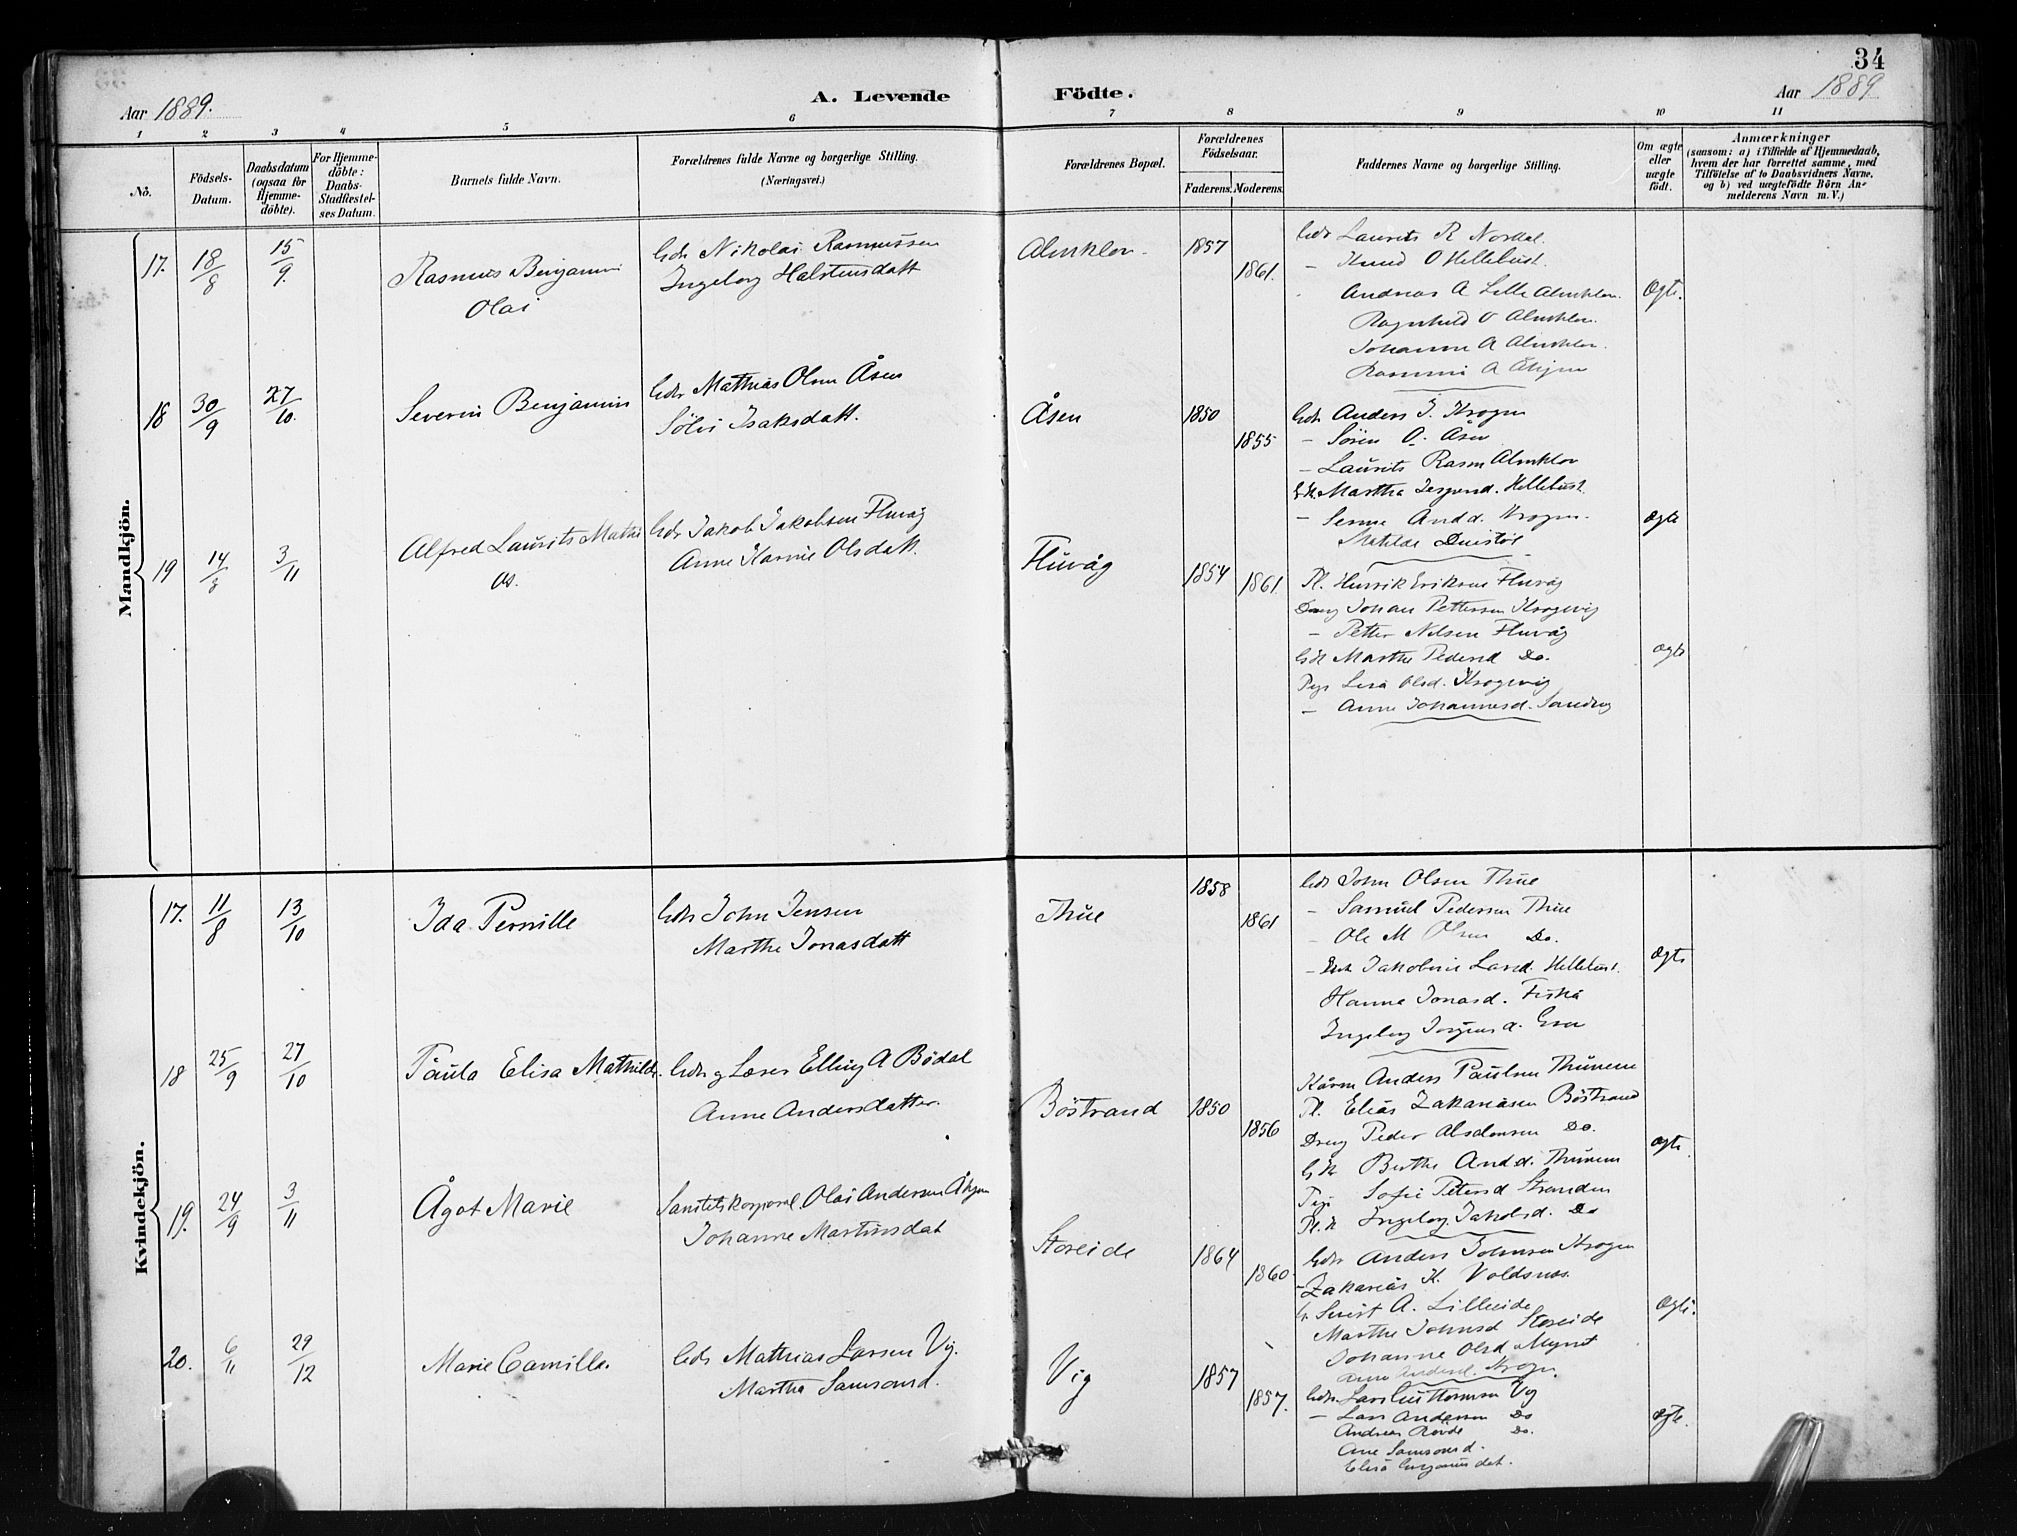 34
Aar 1889. A. Levende Födte. Aar 1889
1 2 3 4 5 6 7 8 9 10 11
Nô. Födsels-Datum. Daabsdatum (ogsaa for Hjemme-döbte). For Hjemme-döbte: Daabs-Stadfæstel-ses Datum. Barnets fulde Navn. Forældrenes fulde Navne og borgerlige Stilling. (Næringsvei.) Forældrenes Bopæl. Forældrenes Födselsaar. Faderens. Moderens. Faddernes Navne og borgerlige Stilling. Om ægte eller uægte födt. Anmærkninger (saasom: a) i Tilfælde af Hjemmedaab, hvem der har forrettet samme, med Tilföielse af to Daabsvidners Navne, og b) ved uægtefödte Börn An-melderens Navn m. V.)
Mandkjön.
17. 18/8 15/9. Rasmus Benjamin Olai
Gdr Nikolai Rasmussen
Ingeborg Halstensdatt
Almklov 1857 1861.
Gdr Laurits R Nordal.
- Knud O Hellebust.
Andreas A Lille Almklov.
Ragnhild O Almklov.
Johanne A Almklov.
Rasmine A
Ægte.
18 30/9 27/10. Severin Benjamin
Gdr Mathias Olsen Åsen
Sölvi Isaksdatt.
Åsen 1850 1855
Gdr Anders J. Krogen
- Sören O. Åsen
- Laurits Rasm Almklov
Gk. Martha Jespersd. Hellebust.
- Andd. Krogen.
Matilde
Ægte
19 14/8 3/11 Alfred Laurits Mathi as.
Gdr Jakob Jakobsen Fluvåg
Anne Karine Olsdatt.
Fluvåg 1854 1861.
Pl. Henrik Eriksen Fluvåg
Dreng Johan Pettersen Krogevig
- Petter Nilsen Fluvåg
Gk Marthe Pedersd Do.
Pige Olsd. Krogevig
- Anne Johannesd. Sandvig
Ægte
Kvindekjön.
17. 11/8 13/10 Ida Pernille
Gdr John Jensen
Marthe Jonasdatt
Thue 1858 1861
Gdr John Olsen Thue
- Samuel Pedersen Thue
- Ole M Olsen Do.
- Jakobine Larsd. Hellebust.
Hanna Jonasd. Fiskå
Ingeborg Jörgensd.
Ægte
18 25/9 27/10 Paula Elisa Mathilde.
Gdr g Lærer Elling A Bödal
Anne Andersdatter.
Böstrand 1850 1856
Kårm Anders Paulsen Thunem
Pl. Elias Zakariasen Böstrand
Dreng Peder Absalonsen Do.
Gk Berthe Andd. Thunem
Pige Sofie Petersd Stranden
Pl. k Ingeborg Jakobsd. Do
Ægte.
19. 24/9 3/11 Ågot Marie
Sanitetskorporal Olai Andersen
Johanne Martinusdat
Storeide 1864 1860
Gdr Anders Johnsen Krogen
- Zakarias K. Voldsnes.
A. Lilleeide
Marthe Johnsd Storeide
Johanne Olsd Myret
Anne Andersd. Krogen.
Ægte.
20. 6/11 29/12 Marie Camilla.
Gdr Mathias Larsen Vig.
Martha Samsonsd.
Vig 1857 1857.
Gdr. Lars Guttormsen Vig
- Lars Andersen Do
Andreas Rövde Do.
Ane Samsonsd.
Elisa
Ægte.